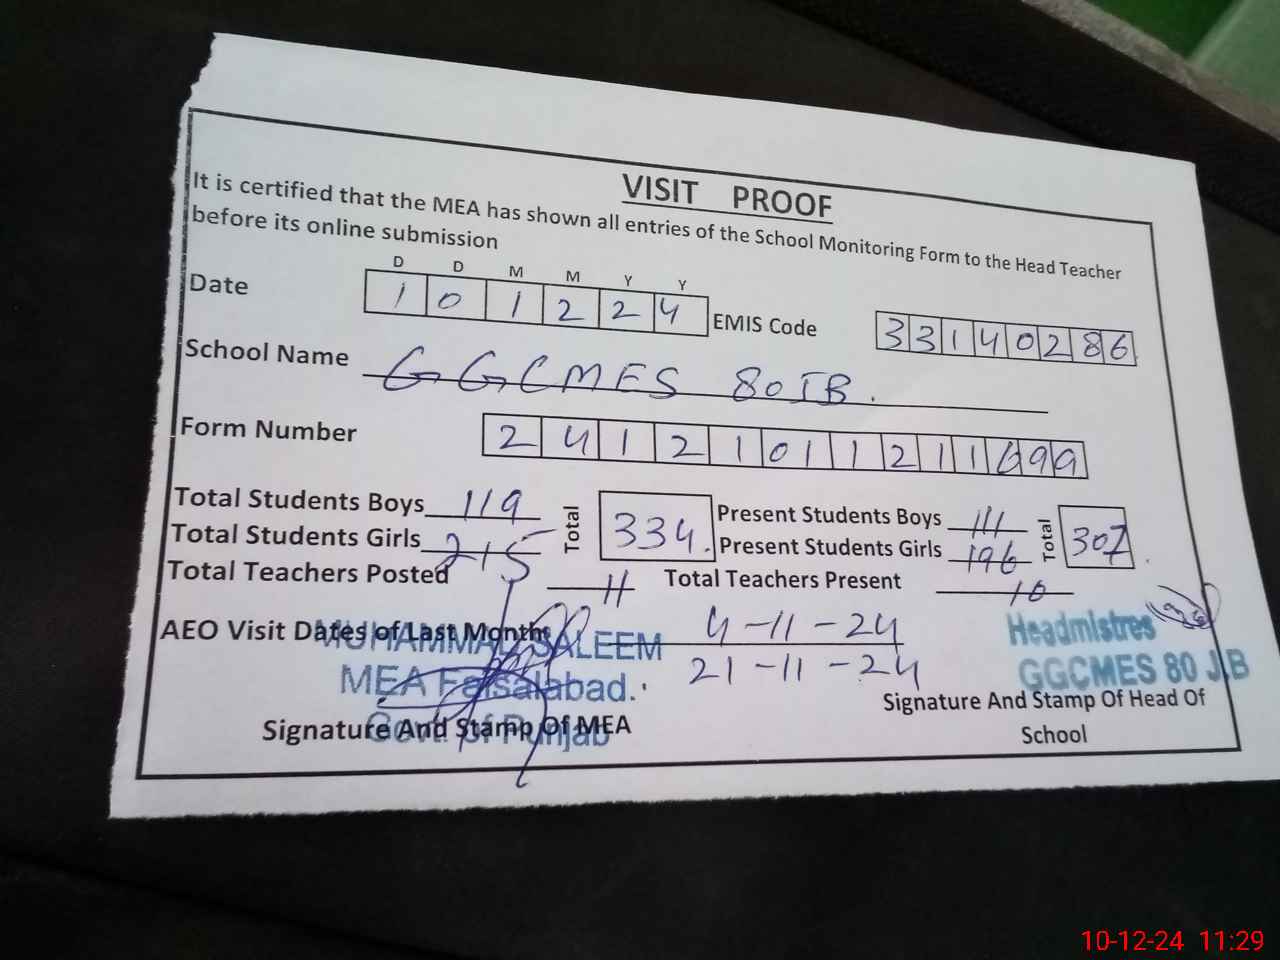 VISIT PROOF
It is certified that the MEA has shown all entries of the School Monitoring Form to the Head Teacher
before its online submission
D D M M Y Y
Date 1 0 1 2 2 4 EMIS Code 3 3 1 4 0 2 8 6
School Name GGCMES 80JB.
Form Number 2 4 1 2 1 0 1 1 2 1 1 6 9 9
Total Students Boys 119 Total 334. Present Students Boys 111 Total 307
Total Students Girls 215 Present Students Girls 196
Total Teachers Posted 11 Total Teachers Present 10
AEO Visit Dates of Last Months 4-11-24
21-11-24
MUHAMMAD SALEEM
MEA Faisalabad.
Govt. of Punjab
Signature And Stamp Of MEA
Headmistres
GGCMES 80 J.B
Signature And Stamp Of Head Of
School
10-12-24 11:29